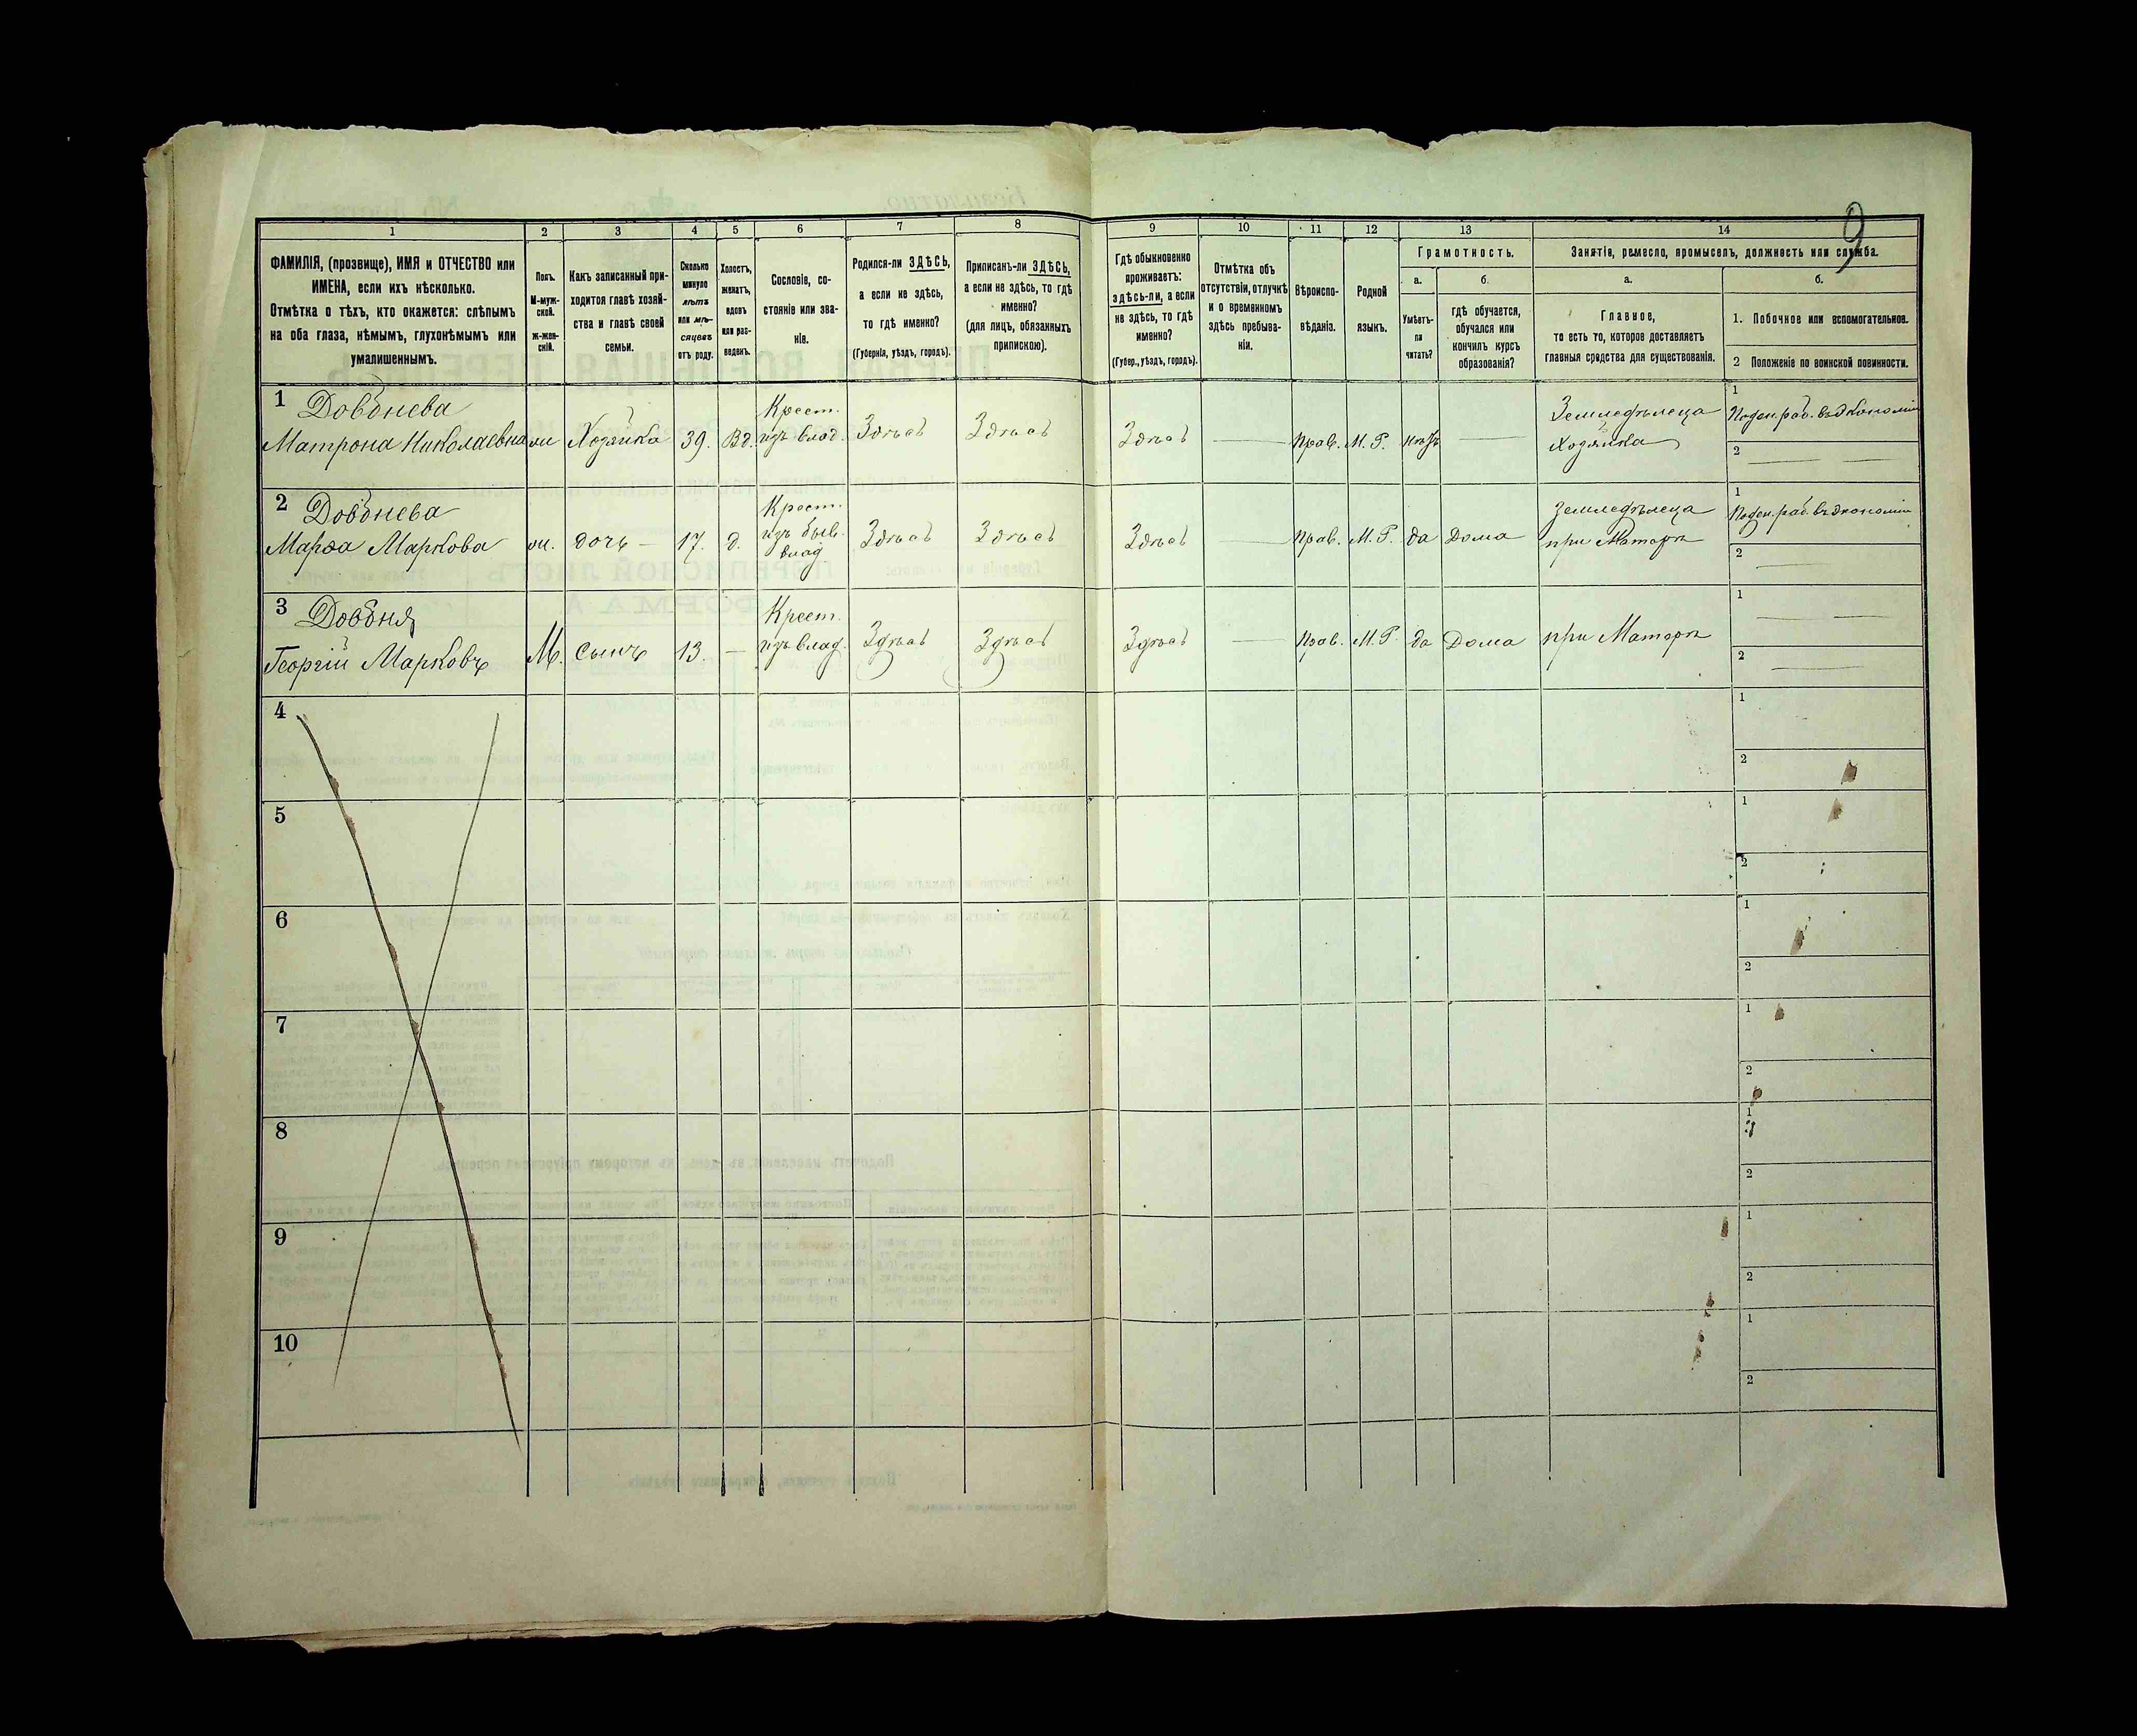 9
1
2
3
4
5
6
7
8
9
10
11
12
13
14
ФАМИЛІЯ, (прозвище), ИМЯ и ОТЧЕСТВО или
ИМЕНА, если ихъ нѣсколько.
Отмѣтка о тѣхъ, кто окажется: слѣпымъ
на оба глаза, нѣмымъ, глухонѣмымъ или
умалишеннымъ.
Полъ.
М-муж-
ской.
Ж-жен-
скій.
Какъ записанный при-
ходится главѣ хозяй-
ства и главѣ своей
семьи.
Сколько
минуло
лѣтъ
или мѣ-
сяцевъ
отъ роду.
Холостъ,
женатъ,
вдовъ
или раз-
веденъ.
Сословіе, со-
стояніе или зва-
ніе.
Родился-ли ЗДѢСЬ,
а если не здѣсь,
то гдѣ именно?
(Губернія, уѣздъ, городъ).
Приписанъ-ли ЗДѢСЬ,
а если не здѣсь, то гдѣ
именно?
(для лицъ, обязанныхъ
припискою).
Гдѣ обыкновенно
проживаетъ:
здѣсь-ли, а если
не здѣсь, то гдѣ
именно?
(Губер., уѣздъ, городъ).
Отмѣтка объ
отсутствіи, отлучкѣ
и о временномъ
здѣсь пребыва-
ніи.
Вѣроиспо-
вѣданіе.
Родной
языкъ.
Грамотность.
а.
Умѣетъ-
ли
читать?
б.
гдѣ обучается,
обучался или
кончилъ курсъ
образованія?
Занятіе, ремесло, промыселъ, должность или служба.
а.
Главное,
то есть то, которое доставляетъ
главныя средства для существованія.
б.
1. Побочное или вспомогательное.
2 Положеніе по воинской повинности.
1 Довбнева
Матрона Николаевна
ж
Хозяйка
39.
Вд.
Крест.
изъ влад.
Здѣсь
Здѣсь
Здѣсь
Прав.
М. Р.
нѣтъ
Земледѣлеца
Хозяйка
1
Поден. раб. въ экономіи
2
2 Довбнева
Марѳа Маркова
ж.
дочь
17.
д.
Крест.
изъ быв.
влад
Здѣсь
Здѣсь
Здѣсь
Прав.
М. Р.
да
Дома
Земледѣлеца
при Матери
1
Поден. раб. въ экономіи
2
3 Довбня
Георгій Марковъ
М.
сынъ
13.
Крест.
изъ влад.
Здѣсь
Здѣсь
Здѣсь
Прав.
М. Р.
да
Дома
при Матери
1
2
4
1
2
5
1
2
6
1
2
7
1
2
8
1
2
9
1
2
10
1
2